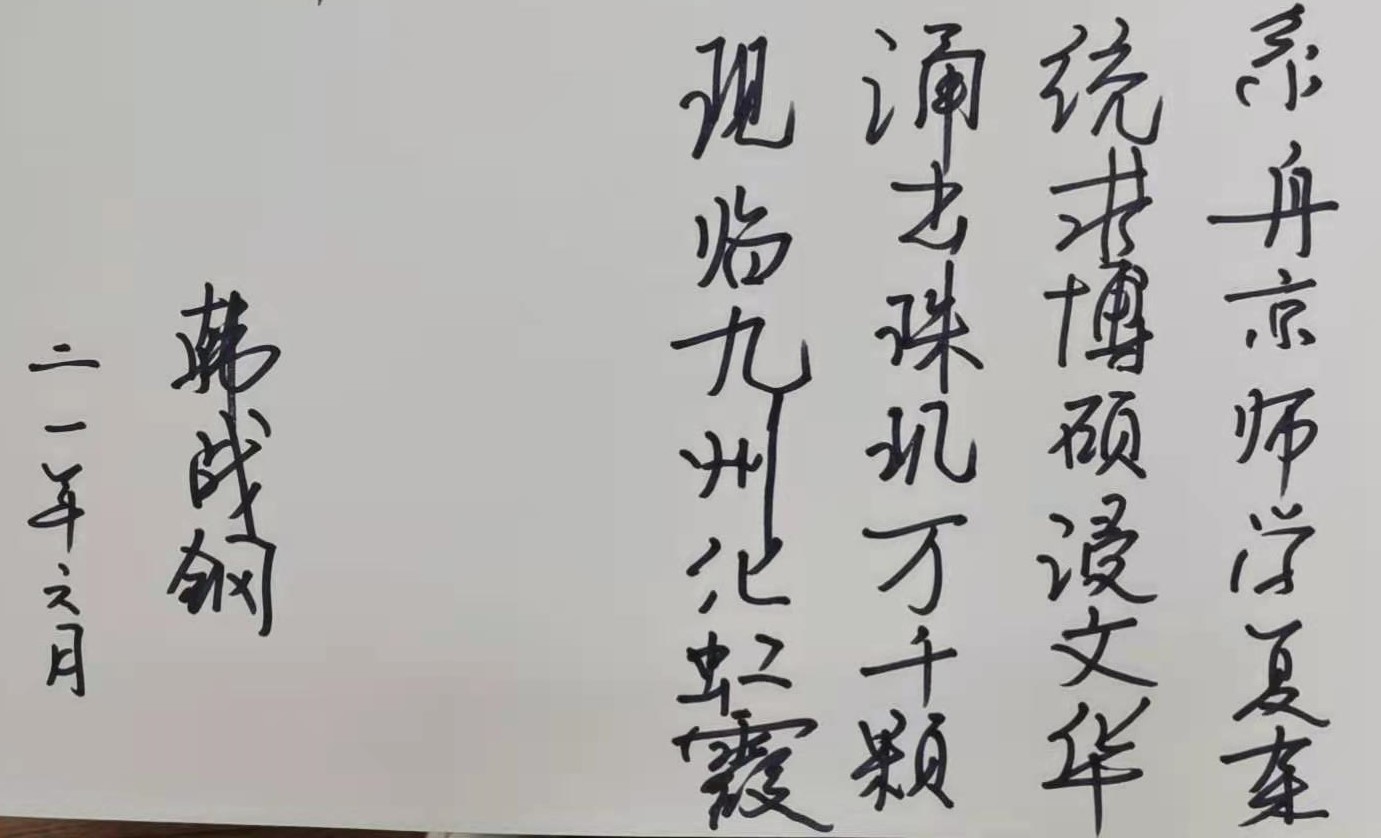 系舟京师学夏
统博硕浸文华
涌出珠玑万千颗
现临九州化虹霞
韩战钢
二一年六月